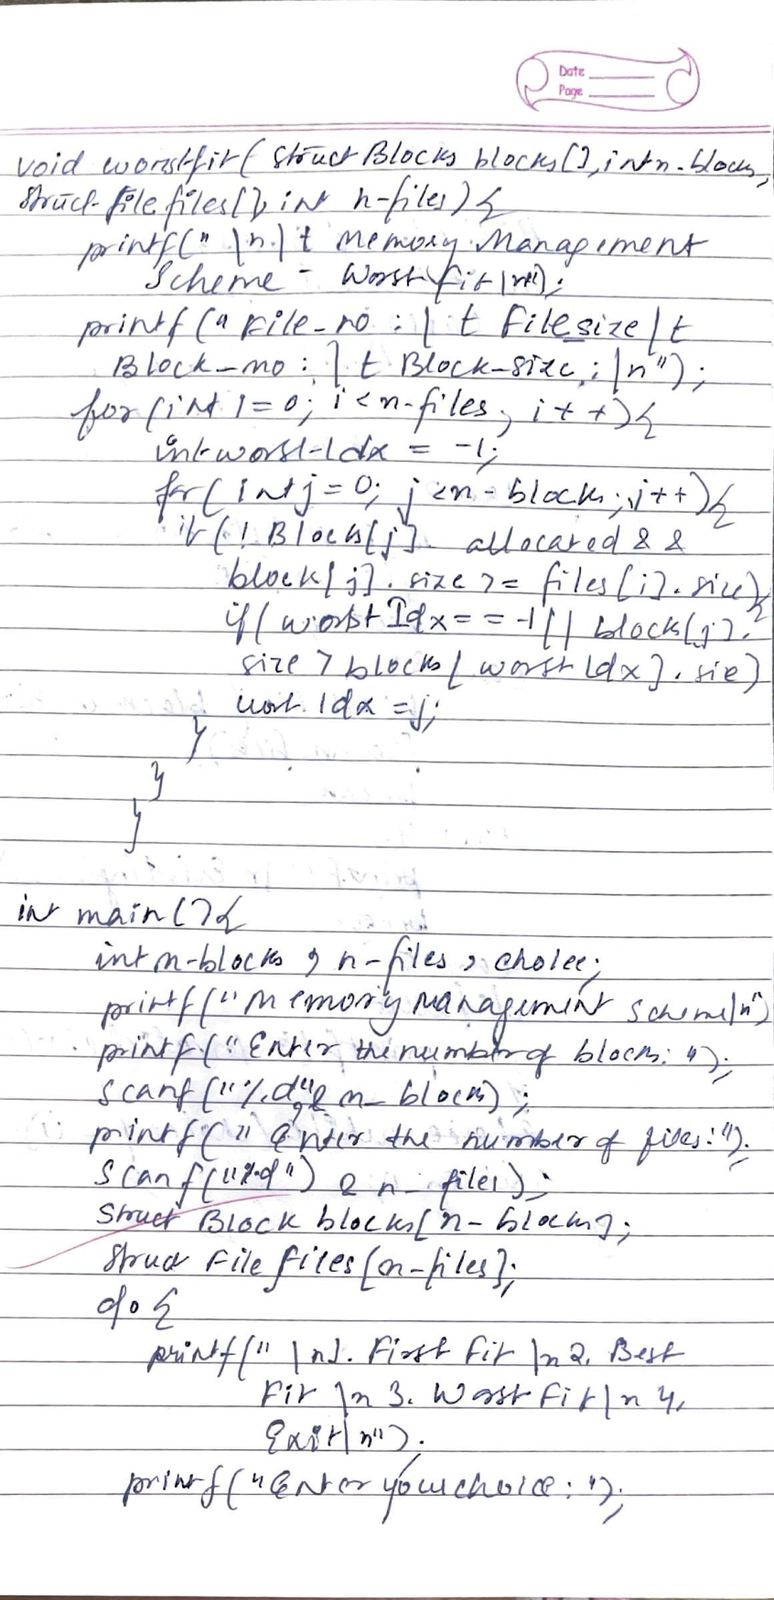 Date
Page
void worstfit( struct Blocks blocks[], int n-blocks,
struct file files[], int n-files) {
printf(" \n \t Memory Management
Scheme - Worst fit \n");
printf(" File-no : \t File size \t
Block-no : \t Block-size : \n");
for (int i=0; i<n-files, i++){
int worst-Idx = -1;
for( int j=0; j<n-blocks; j++){
if (! Block[j]. allocated &&
block[j].size >= files[i].size){
if( worst Idx==-1 || block[j].
size > blocks[ worst Idx].size)
worst Idx = j;
}
}
}
int main(){
int n-blocks, n-files, choice;
printf("Memory Management Scheme\n")
printf("Enter the number of blocks: ");
scanf("%d", & n-blocks);
printf(" Enter the number of files:");
scanf("%d") & n-files);
struct Block blocks[n-blocks];
struct File files[n-files];
do {
printf(" \n1. First Fit \n 2. Best
Fit \n 3. Worst Fit \n 4.
Exit \n").
printf("Enter your choice: ");